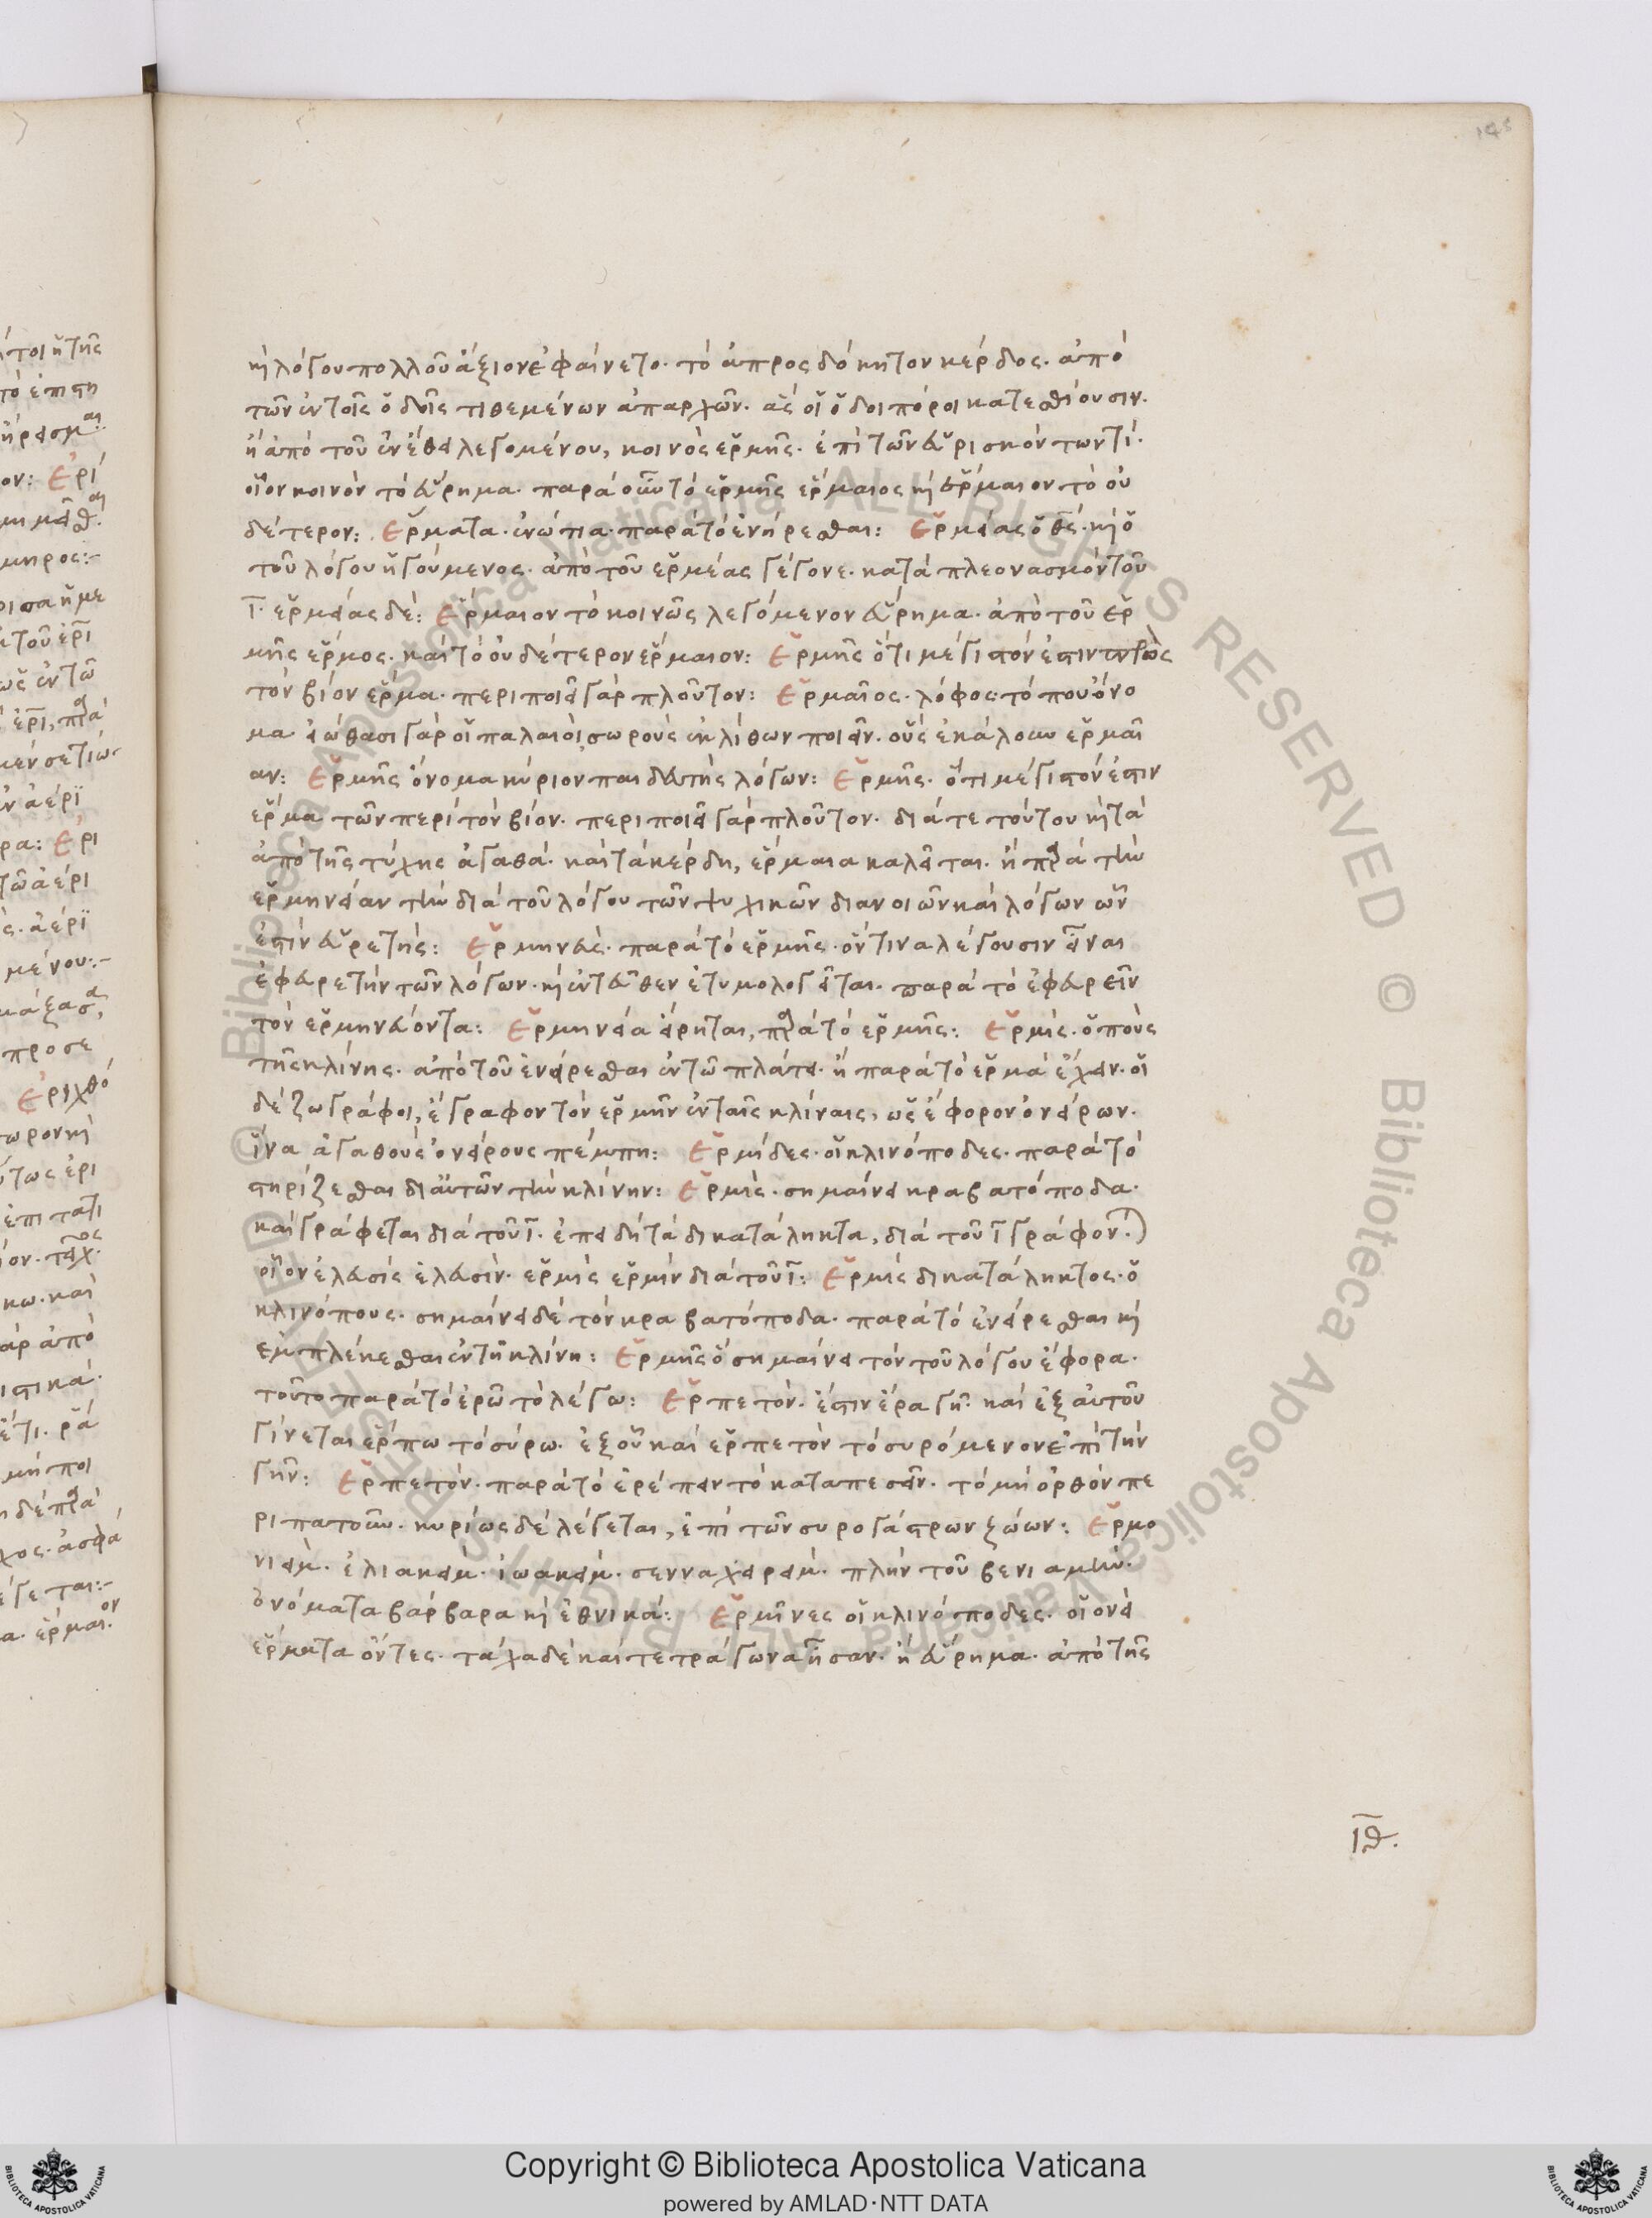 καὶ λόγου πολλοῦ ἄξιον ἐφαίνετο· τὸ ἀπροσδόκητον κέρδος· ἀπὸ
τῶν ἐν τοῖς ὁδοῖς τιθεμένων ἀπαρχῶν· ἃς οἱ ὁδοιπόροι κατεσθίουσιν·
ἢ ἀπὸ τοῦ ἐν ἔθει λεγομένου, κοινὸς ἑρμῆς· ἐπὶ τῶν εὑρισκόντων τί·
οἷον κοινὸν τὸ εὕρημα· παρὰ οὖν τὸ ἑρμῆς ἕρμαιος καὶ ἕρμαιον τὸ οὐ
δέτερον: Ἕρματα· ἐνώτια· παρὰ τὸ ἐνήρεσθαι: Ἑρμείας ὁ θεός· καὶ ὁ
τοῦ λόγου ἡγούμενος· ἀπὸ τοῦ ἑρμέας γέγονε· κατὰ πλεονασμὸν τοῦ
ι· ἑρμείας δέ: Ἕρμαιον τὸ κοινῶς λεγόμενον εὕρημα· ἀπὸ τοῦ ἑρ
μῆς ἕρμος· καὶ τὸ οὐδέτερον ἕρμαιον: Ἑρμῆς ὅτι μέγιστόν ἐστιν
τὸν βίον ἕρμα· περιποιεῖ γὰρ πλοῦτον: Ἑρμαῖος· λόφος· τόπου ὄνο
μα εἰώθασι γὰρ οἱ παλαιοὶ, σωροὺς ἐκ λίθων ποιεῖν· οὓς ἐκάλουν ἑρμαῖ
αν: Ἑρμῆς ὄνομα κύριον παιδευτὴς λόγων: Ἑρμῆς· ὅτι μέγιστόν ἐστιν
ἕρμα τῶν περὶ τὸν βίον· περιποιεῖ γὰρ πλοῦτον· διά τε τοῦτον καὶ τὰ
ἀπὸ τῆς τύχης ἀγαθά· καὶ τὰ κέρδη, ἕρμαια καλεῖται· ἢ παρὰ τὴν
ἑρμηνείαν τὴν διὰ τοῦ λόγου τῶν ψυχικῶν διανοιῶν καὶ λόγων ὧν
ἐστὶν εὑρετής: Ἑρμηνεύς· παρὰ τὸ ἑρμῆς· ὅντινα λέγουσιν εἶναι
ἐφευρετὴν τῶν λόγων· καὶ ἐντεῦθεν ἐτυμολογεῖται· παρὰ τὸ ἐφευρεῖν
τὸν ἑρμηνεύοντα: Ἑρμηνεία εἴρηται, παρὰ τὸ ἑρμῆς: Ἑρμίς· ὁ ποὺς
τῆς κλίνης· ἀπὸ τοῦ ἐνείρεσθαι ἐν τῶ πλάτει· ἢ παρὰ τὸ ἕρμα ἔχειν· οἱ
δὲ ζωγράφοι, ἔγραφον τὸν ἑρμῆν ἐν ταῖς κλίναις, ὡς ἔφορον ὀνείρων·
ἵνα ἀγαθοὺς ὀνείρους πέμπη: Ἑρμίδες· οἱ κλινόποδες· παρὰ τὸ
στηρίζεσθαι δι αὐτῶν τὴν κλίνην: Ἑρμίς· σημαίνει κραβατόποδα·
καὶ γράφεται διὰ τοῦ ι· ἐπειδὴ τὰ δικατάληκτα, διὰ τοῦ ι γράφον·
οἷον ἐλευσὶς ἐλευσίν· ἑρμὶς ἑρμὶν διὰ τοῦ ι: Ἑρμὶς δικατάληκτος· ὁ
κλινόπους· σημαίνει δὲ τὸν κραβατόποδα· παρὰ τὸ ἐνείρεσθαι καὶ
ἐμπλέκεσθαι ἐν τῆ κλίνη: Ἑρμῆς ὁ σημαίνει τὸν τοῦ λόγου ἔφορα·
τοῦτο παρὰ τὸ ἐρῶ τὸ λέγω: Ἑρπετόν· ἔστιν ἔρα γῆ· καὶ ἐξ αὐτοῦ
γίνεται ἕρπω τὸ σύρω· ἐξ οὗ καὶ ἑρπετὸν τὸ συρόμενον ἐπὶ τὴν
γῆν: Ἑρπετόν· παρὰ τὸ ἐρέπειν τὸ καταπεσεῖν· τὸ μὴ ὀρθὸν πε
ριπατοῦν· κυρίως δὲ λέγεται, ἐπὶ τῶν συρογάστρων ζώων: Ἑρμο
νιείμ· ἐλιακείμ· ἰωακείμ· σενναχειρείμ· πλὴν τοῦ βενιαμίν·
ὀνόματα βάρβαρα καὶ ἐθνικά: Ἑρμῖνες οἱ κλινόποδες· οἱονεὶ
ἕρματα ὄντες· τάχα δὲ καὶ τετράγωνα ἦσαν· ἢ εὕρημα· ἀπὸ τῆς
ιθ·
Copyright © Biblioteca Apostolica Vaticana
powered by AMLAD·NTT DATA